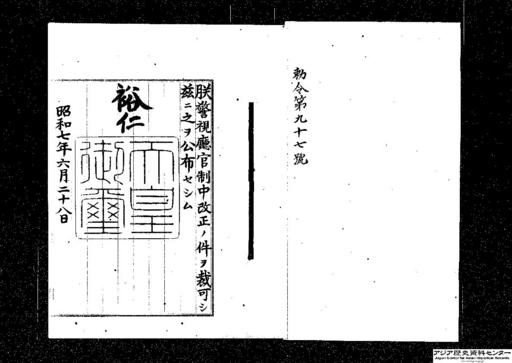 勅令第九十七號
朕警視廳官制中改正ノ件ヲ裁可シ
玆ニ之ヲ公布セシム
裕仁
天皇
御璽
昭和七年六月二十八日
アジア歴史資料センター
Japan Center for Asian Historical Records